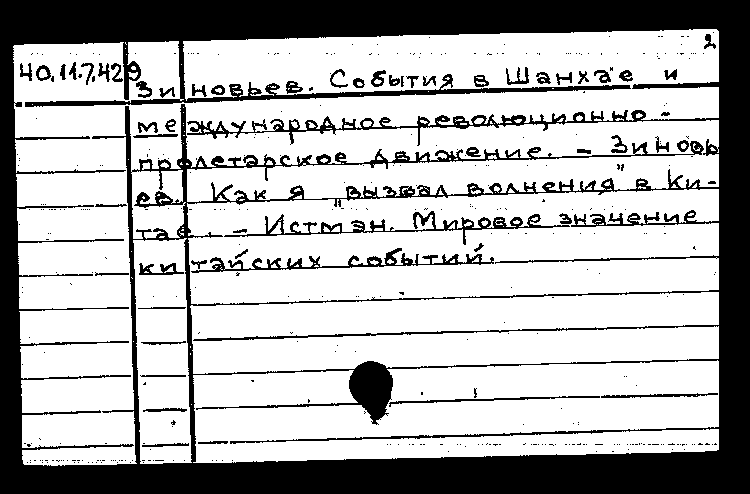 2
40.11.7.429
Зиновьев. События в Шанхае и
международное революционно-
пролетарское движение. – Зиновь
ев. Как я „вызвал волнения" в Ки-
тае. – Истмэн. Мировое значение
китайских событий.